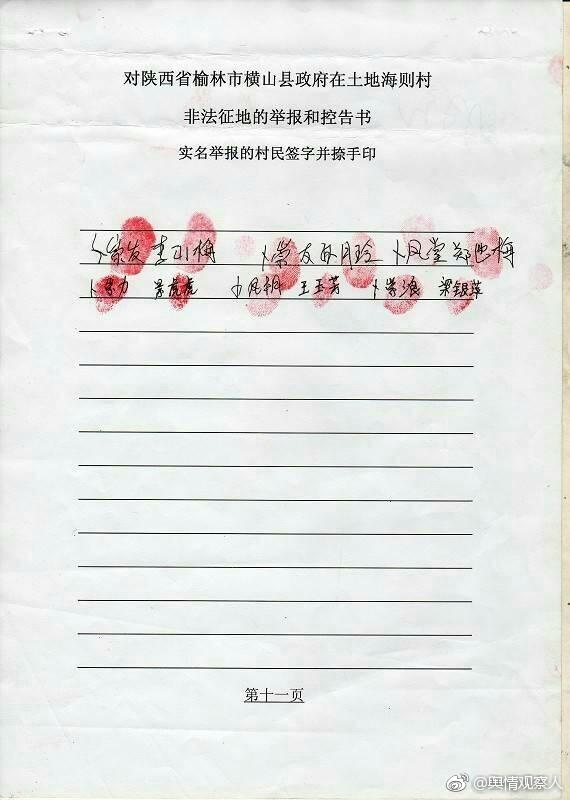 对陕西省榆林市横山县政府在土地海则村
非法征地的举报和控告书
实名举报的村民签字并捺手印
卜家友 李 梅 卜学友 月玲 卜风堂 郑 梅
卜 力 景虎虎 卜风 王玉芳 卜学浪 梁银萍
第十一页
@舆情观察人